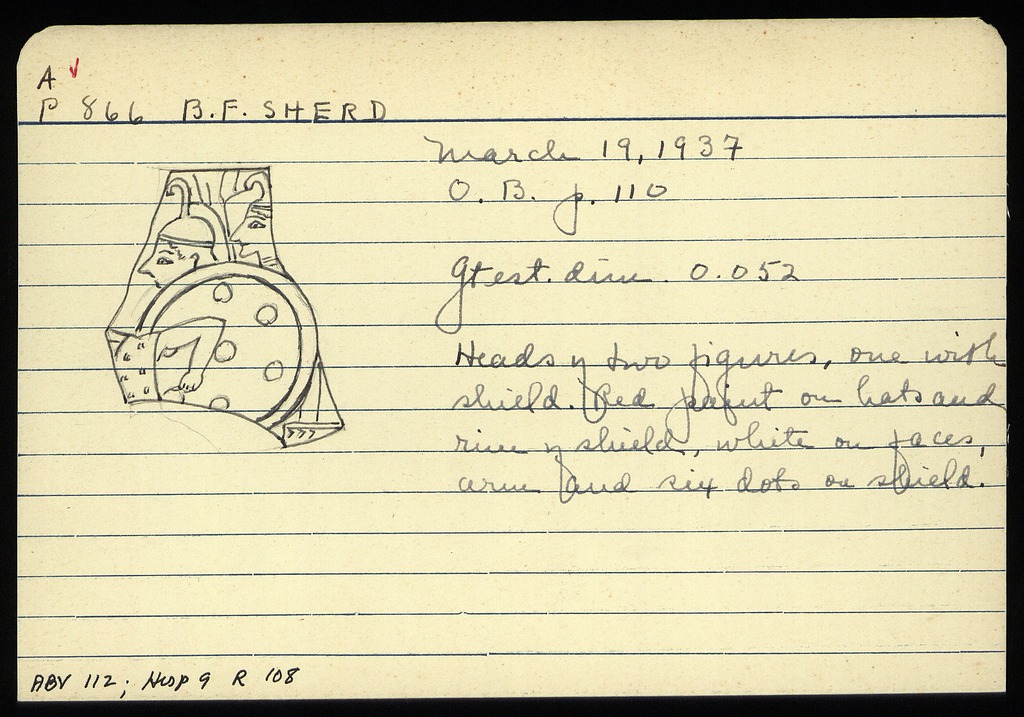 A
P 866 B.F. SHERD
March 19, 1937
O. B. p. 110
Gtest. dim. 0.052
Heads of two figures, one with
shield. Red paint on hats and
rim of shield, white on faces,
arm and six dots on shield.
ABV 112; Hesp 9 R 108